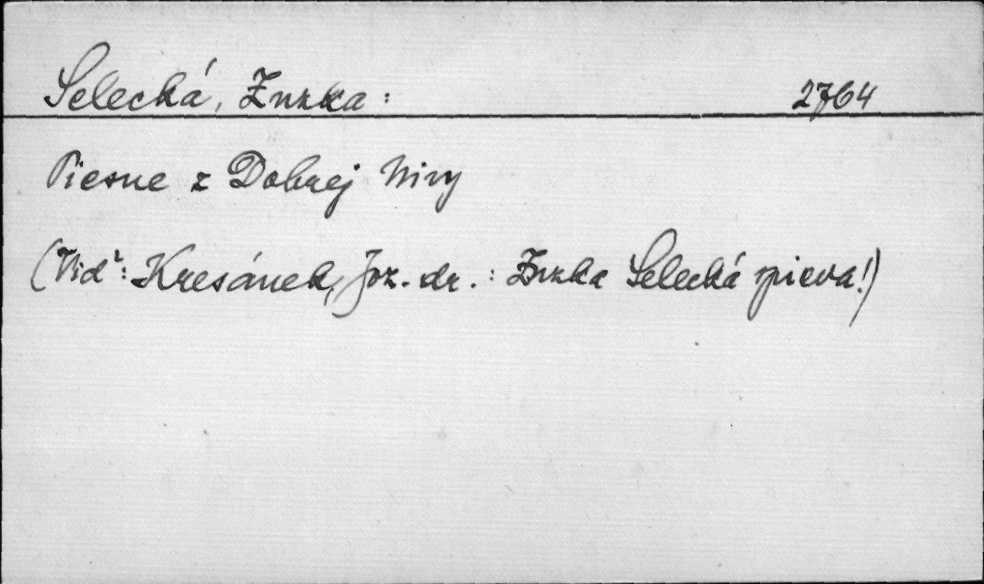 Selecká, Zuzka: 2764
Piesne z Dobrej Nivy
(Viď: Kresánek, Joz. dr.: Zuzka Selecká spieva!)